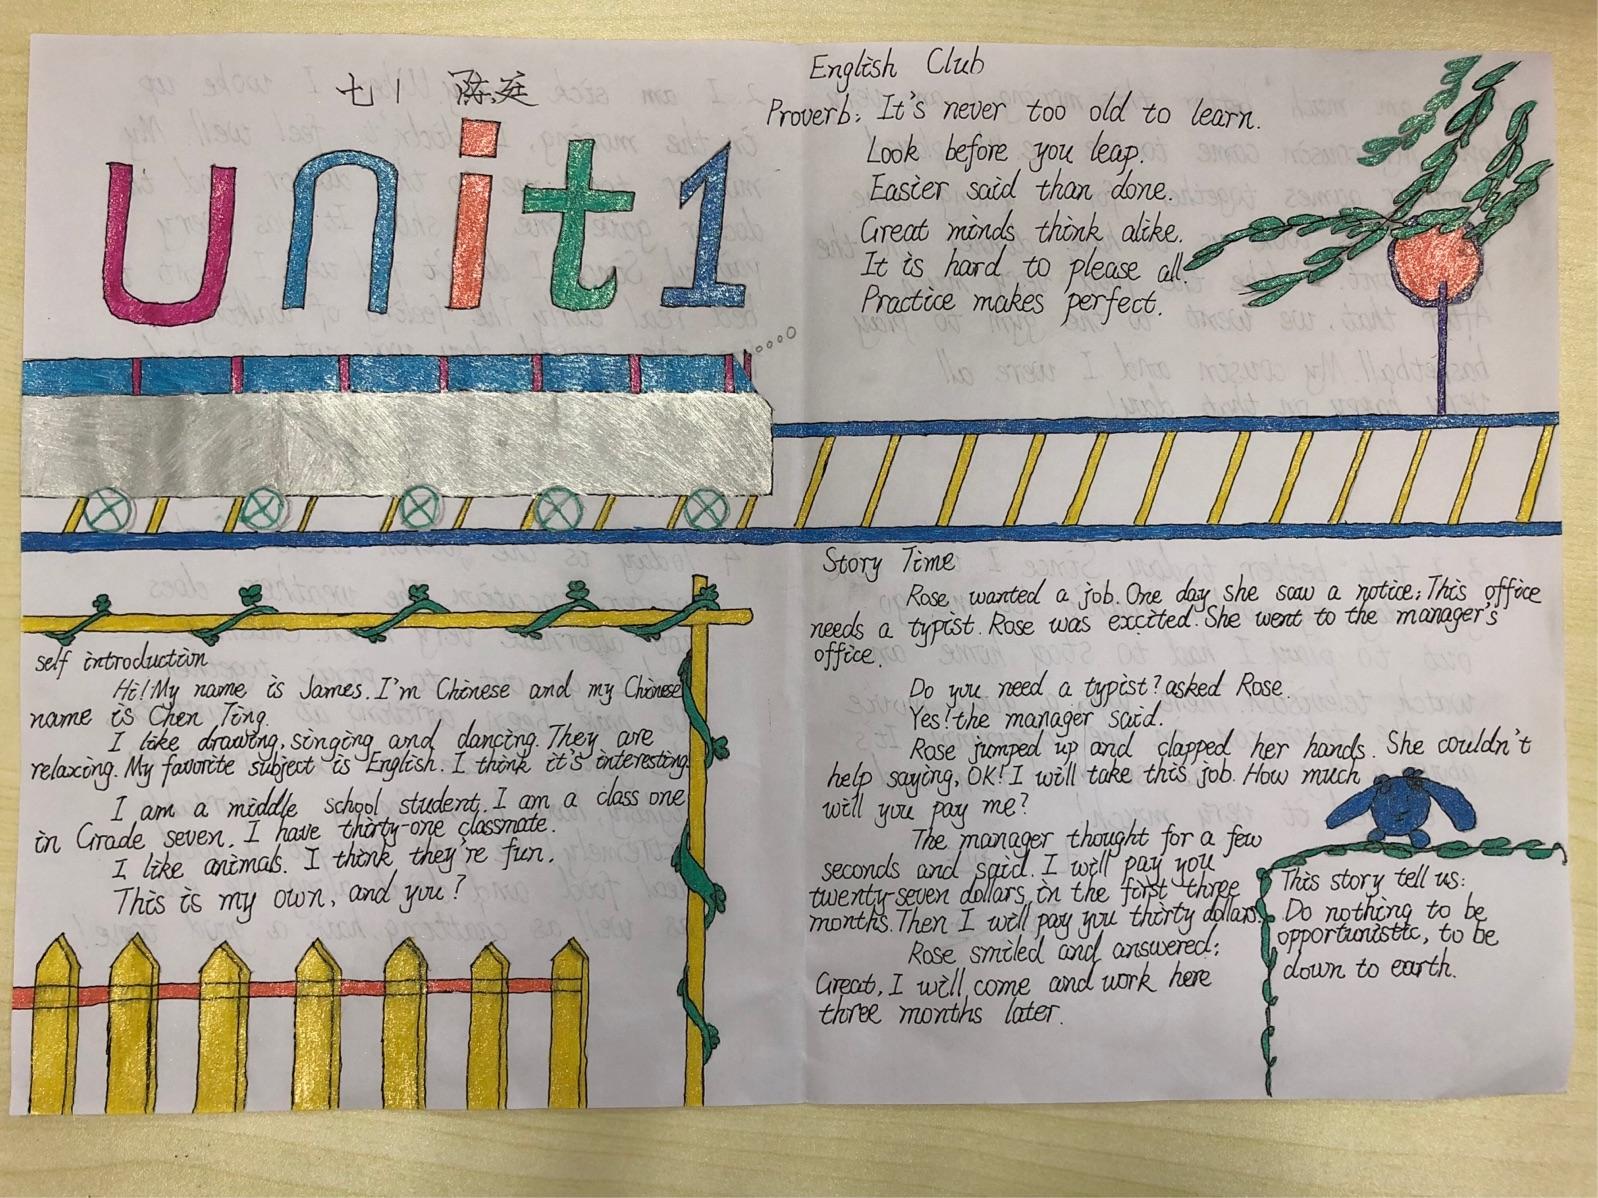 七1 陈廷
unit1
English Club
Proverb: It's never too old to learn.
Look before you leap.
Easier said than done.
Great minds think alike.
It is hard to please all.
Practice makes perfect.
self introduction
Hi! My name is James. I'm Chinese and my Chinese
name is Chen Ting.
I like drawing, singing and dancing. They are
relaxing. My favorite subject is English. I think it's interesting.
I am a middle school student. I am a class one
in Grade seven. I have thirty-one classmate.
I like animals. I think they're fun.
This is my own, and you?
Story Time
Rose wanted a job. One day she saw a notice: This office
needs a typist. Rose was excited. She went to the manager's
office.
Do you need a typist? asked Rose.
Yes! the manager said.
Rose jumped up and clapped her hands. She couldn't
help saying, OK! I will take this job. How much
will you pay me?
The manager thought for a few
seconds and said. I will pay you
twenty-seven dollars in the first three
months. Then I will pay you thirty dollars.
Rose smiled and answered:
Great, I will come and work here
three months later.
This story tell us:
Do nothing to be
opportunistic, to be
down to earth.